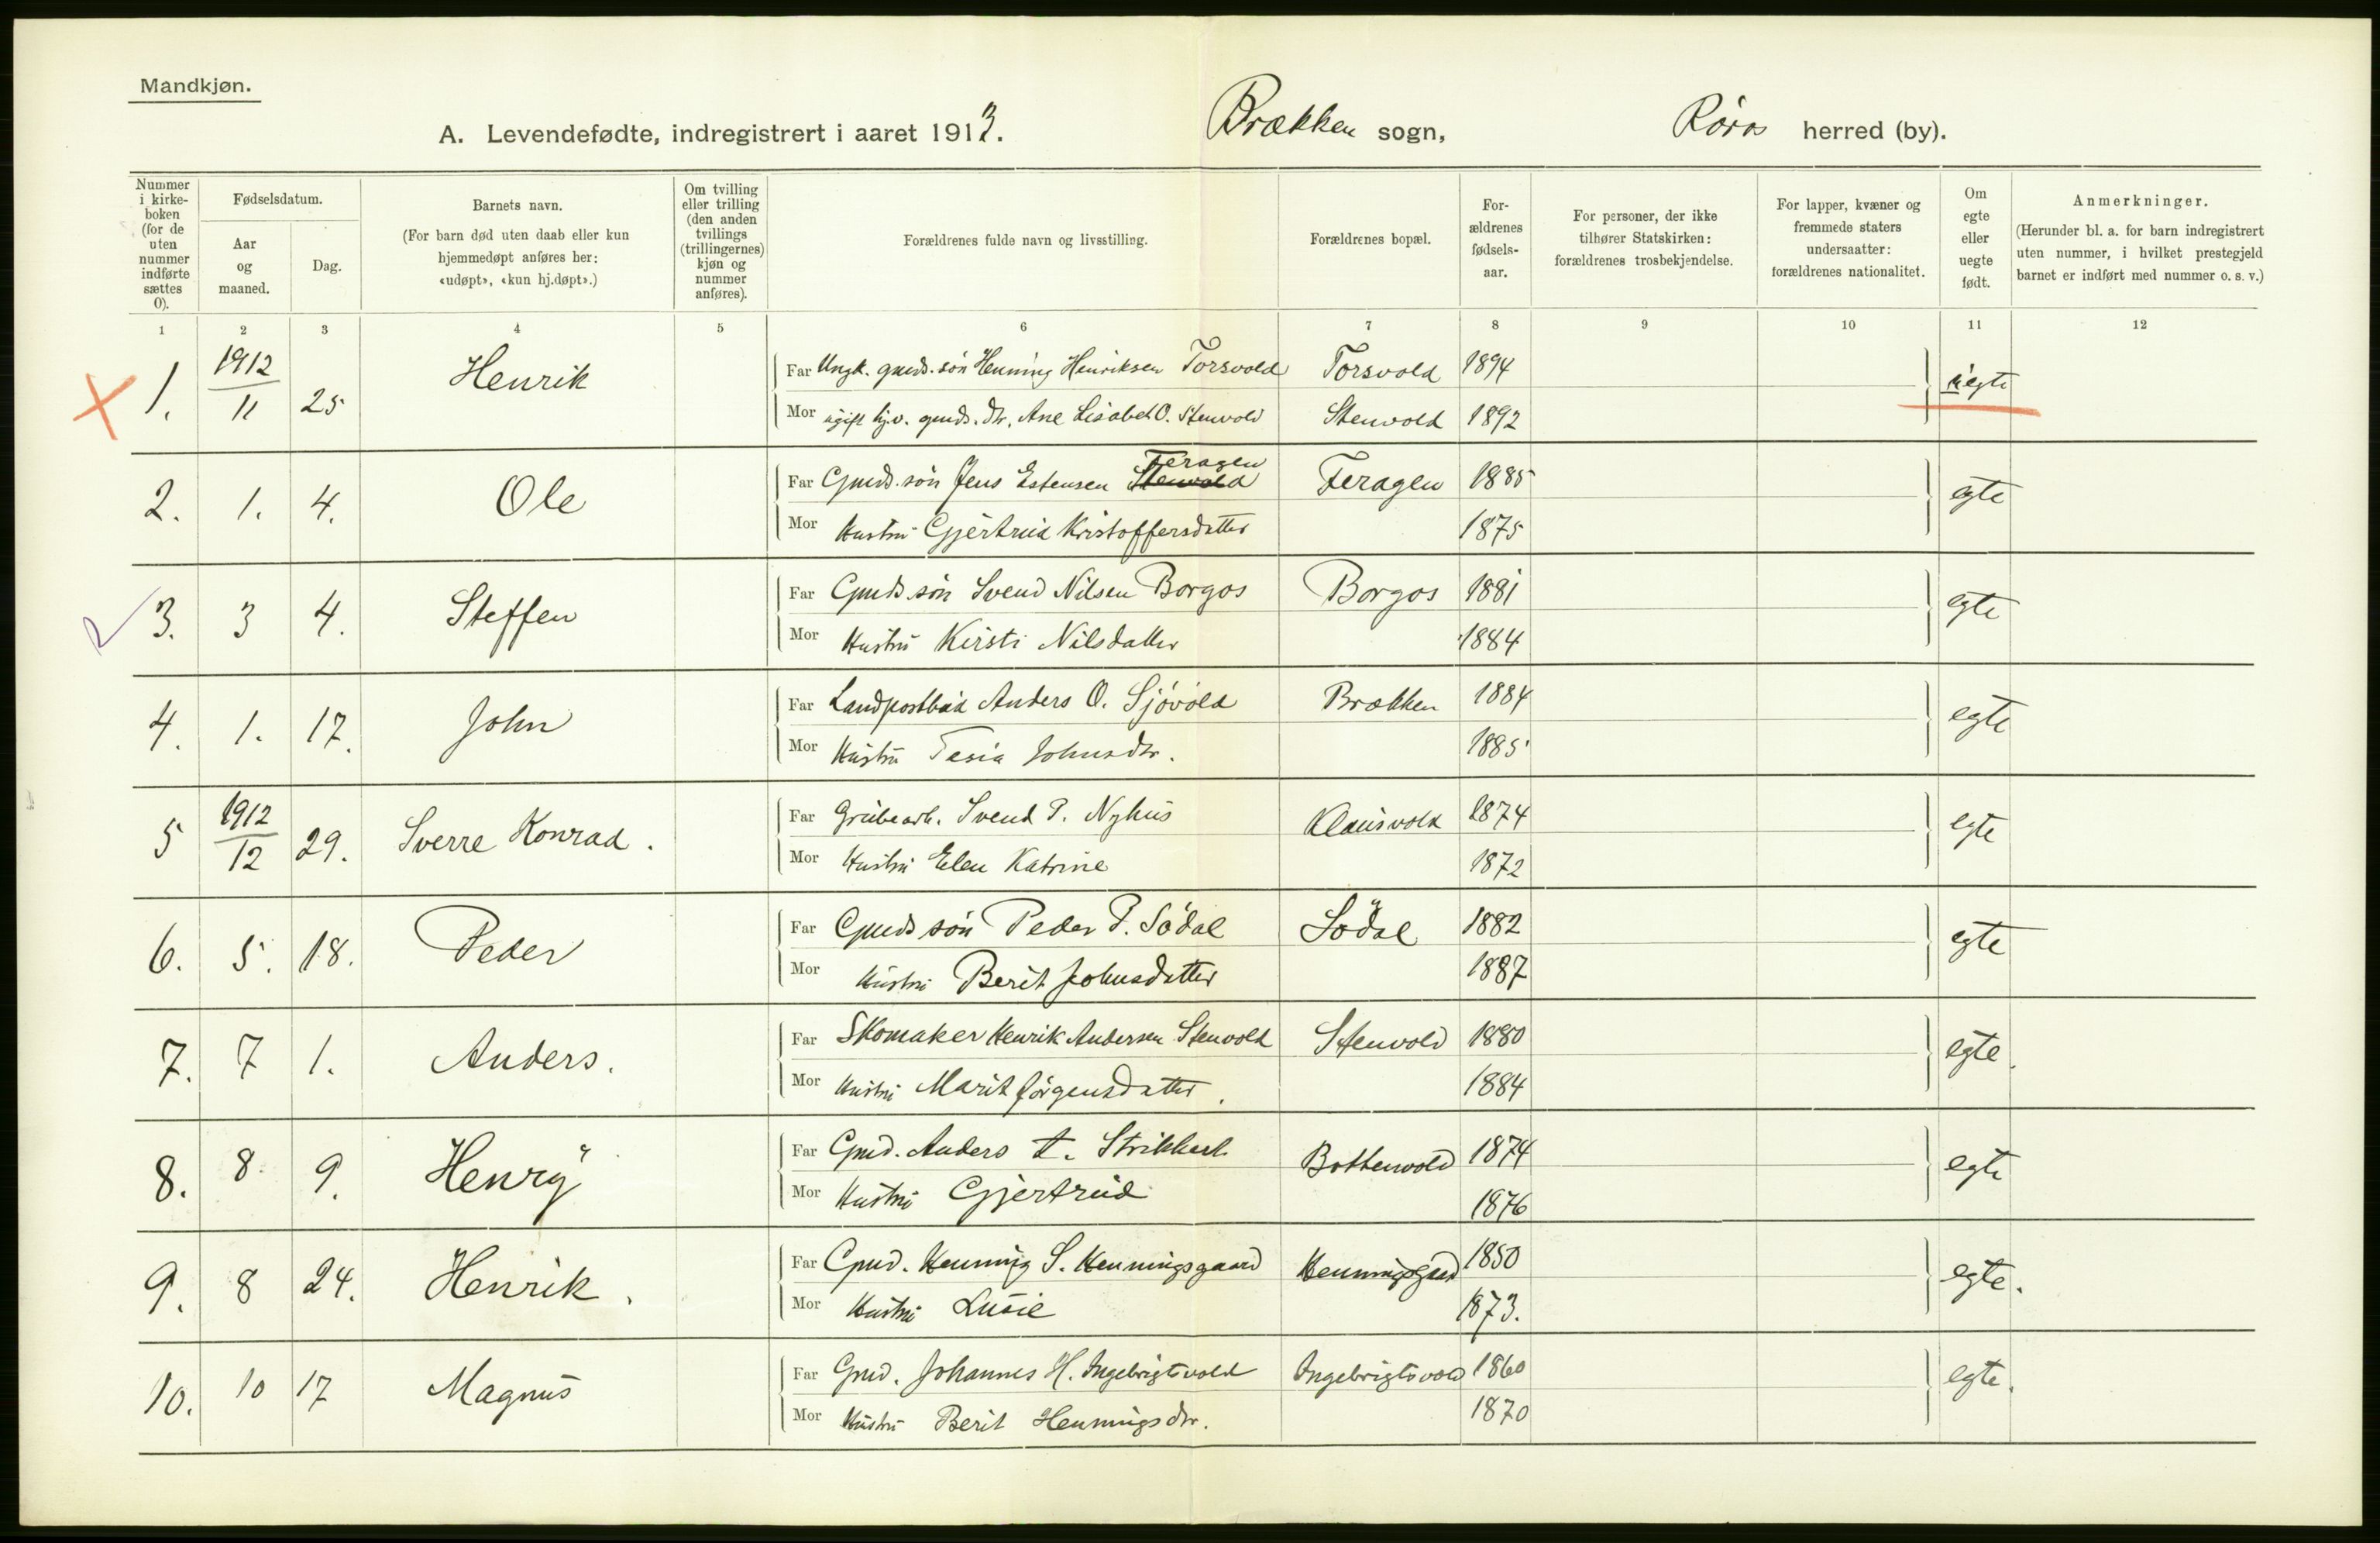 Mandkjøn.
A. Levendefødte, indregistrert i aaret 1913. Brækken sogn, Røros herred (by).
Nummer i kirke-boken (for de uten nummer indførte sættes 0).
Fødselsdatum.
Aar og maaned.
Dag.
Barnets navn.
(For barn død uten daab eller kun hjemmedøpt anføres her: «udøpt», «kun hj.døpt».)
Om tvilling eller trilling (den anden tvillings (trillingernes) kjøn og nummer anføres).
Forældrenes fulde navn og livsstilling.
Forældrenes bopæl.
For-ældrenes fødsels-aar.
For personer, der ikke tilhører Statskirken: forældrenes trosbekjendelse.
For lapper, kvæner og fremmede staters undersaatter: forældrenes nationalitet.
Om egte eller uegte født.
Anmerkninger.
(Herunder bl. a. for barn indregistrert uten nummer, i hvilket prestegjeld barnet er indført med nummer o. s. v.)
1 2 3 4 5 6 7 8 9 10 11 12
1. 1912/11 25 Henrik Far Ungk. gmds. søn Henning Henriksen Torsvold Torsvold 1894 uegte
Mor ugift hj.v. gmds. dtr. Ane Lisabet O. Stenvold Stenvold 1892
2. 1. 4. Ole Far Gmds. søn Jens Estensen Stenvold Feragen Feragen 1885 egte
Mor Hustru Gjertrud Kristoffersdatter 1875
3. 3 4. Steffen Far Gmds søn Svend Nilsen Borgos Borgos 1881 egte
Mor Hustru Kirsti Nilsdatter 1884
4. 1. 17. John Far Landpostbud Anders O. Sjøvold Brækken 1884 egte
Mor Hustru Johnsdtr. 1885
5 1912/12 29. Sverre Konrad. Far Grubearb. Svend P. Nyhus Klausvold 1874 egte
Mor Hustru Elen Katrine 1872
6. 5. 18. Peder Far Gmds søn Peder P. Södal Södal 1882 egte
Mor Hustru Berit Johnsdatter 1887
7. 7 1. Anders. Far Skomaker Henrik Andersen Stenvold Stenvold 1880 egte.
Mor Hustru Marit Jörgensdatter. 1884
8. 8. 9. Henry Far Gmd. Anders t. Bottenvold 1874 egte
Mor Hustru Gjertrud 1876
9. 8 24. Henrik. Far Gmd. Henning S. Henningsgaard Henningsgaard 1850 egte.
Mor Hustru Lusie 1873.
10. 10 17 Magnus Far Gmd. Johannes H. Ingebrigtsvold Ingebrigtsvold 1860 egte.
Mor Hustru Berit Henningsdtr. 1870